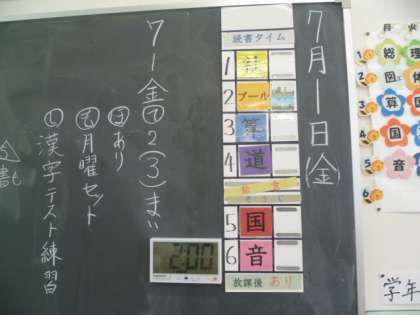 7月1日(金)
読書タイム
1
2 プール
3 算
4 道
給食
そうじ
5 国
6 音
放課後 あり
あり
月曜セット
漢字テスト練習
2:00
月 火
総 理
図工 体
算
国
音
学年